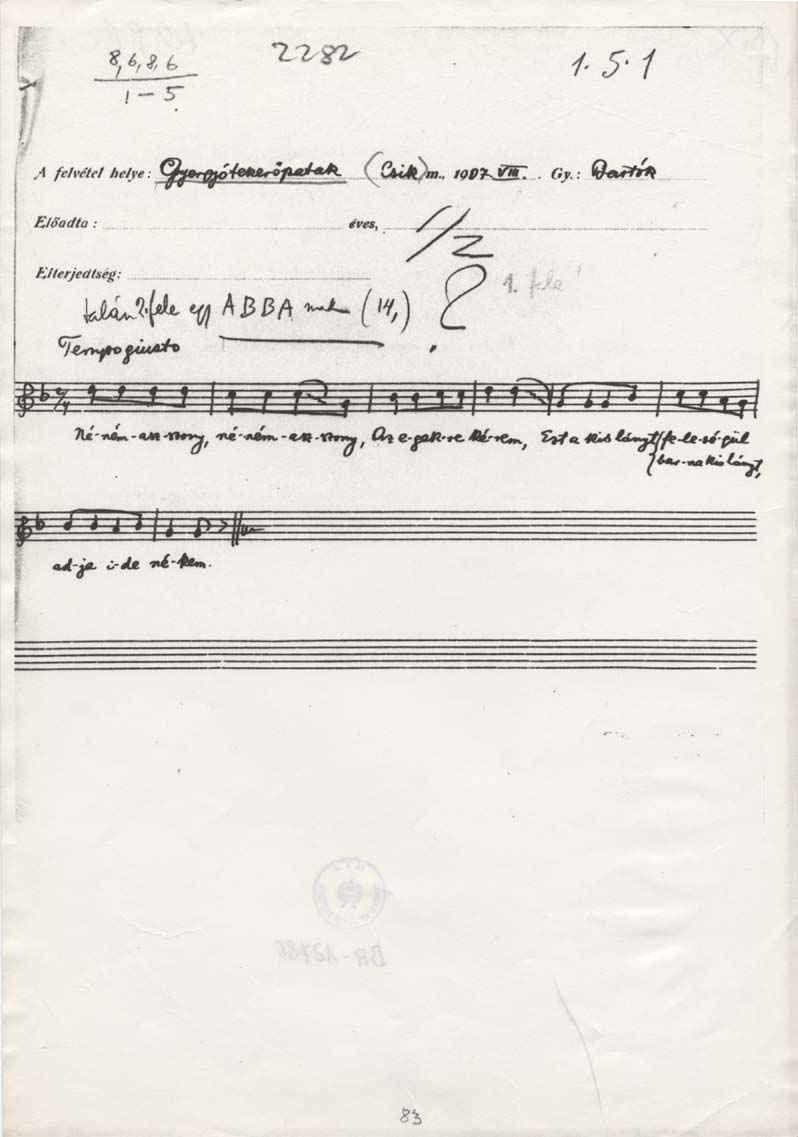 8,6,8,6
1-5
2282
1.5.1
A felvétel helye: Gyergyótekerőpatak (Csik) m., 1907 VIII. Gy.: Bartók
Előadta: éves,
1/2
Elterjedtség:
1. fele
talán 2. fele egy ABBA nak (14,) ?
Tempo giusto
2/4
Né-ném-asz-szony, né-ném-asz-szony, Az e-gek-re ké-rem, Ezt a kis lányt fe-le-sé-gül
bar-na kis lányt,
ad-ja i-de né-kem.
BR-12786
83